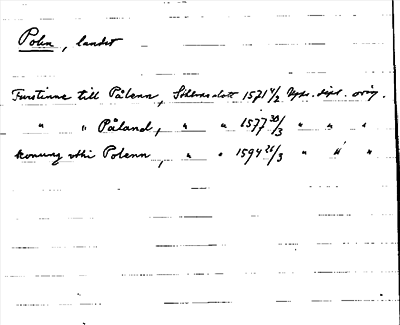 Polen, landet
Furstinne till Pålenn, Stockholms slott 1571 4/2 Upps. dipl. orig.
" " Påland, " " 1577 30/3 " " "
Konung vthi Polenn, " " 1594 26/3 " " "